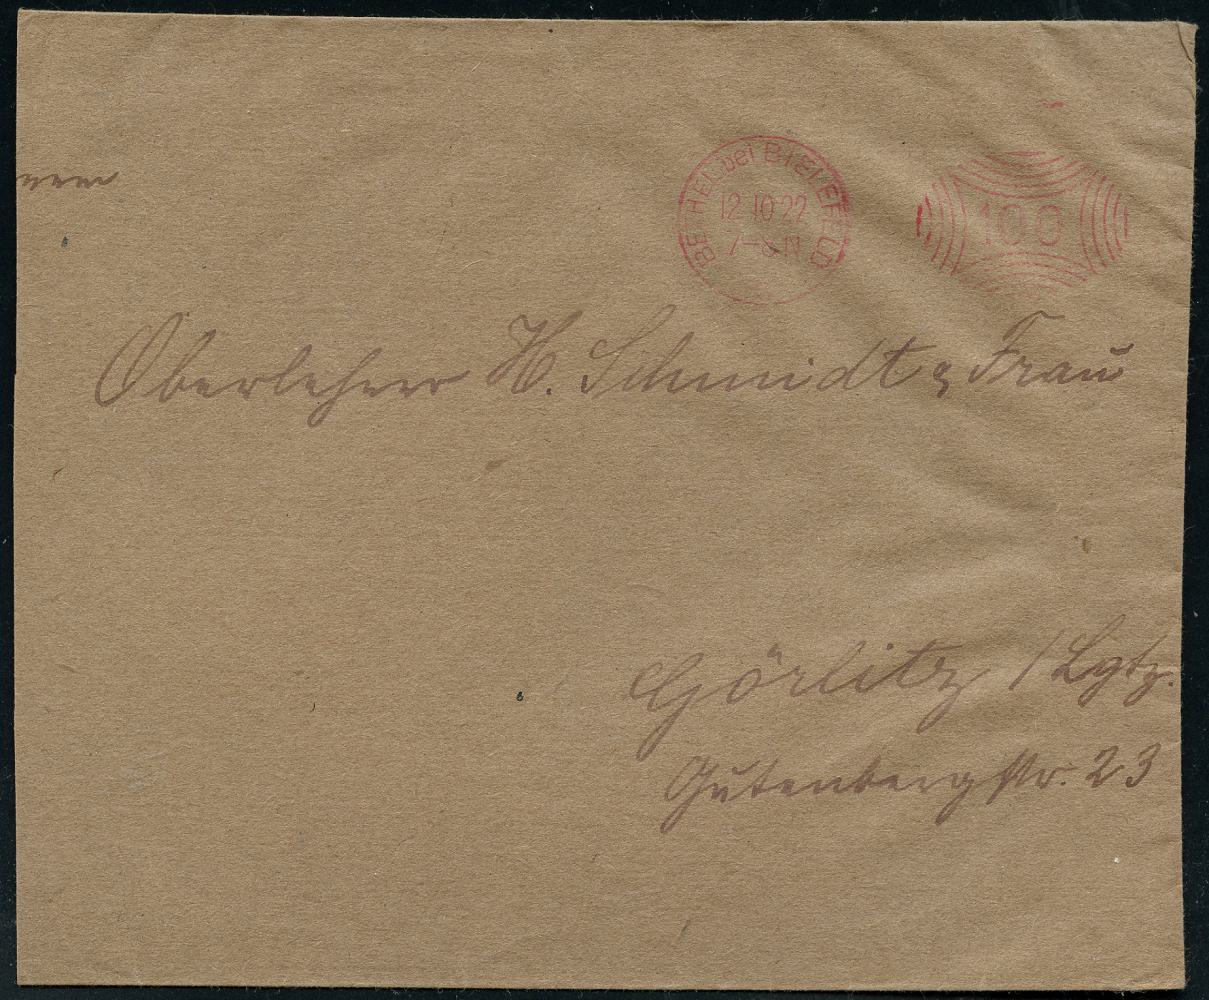 BETHEL bei BIELEFELD
12 10 22
7-8 N
100
Oberlehrer H. Schmidt u Frau
Görlitz / Lgtz.
Gutenbergstr. 23